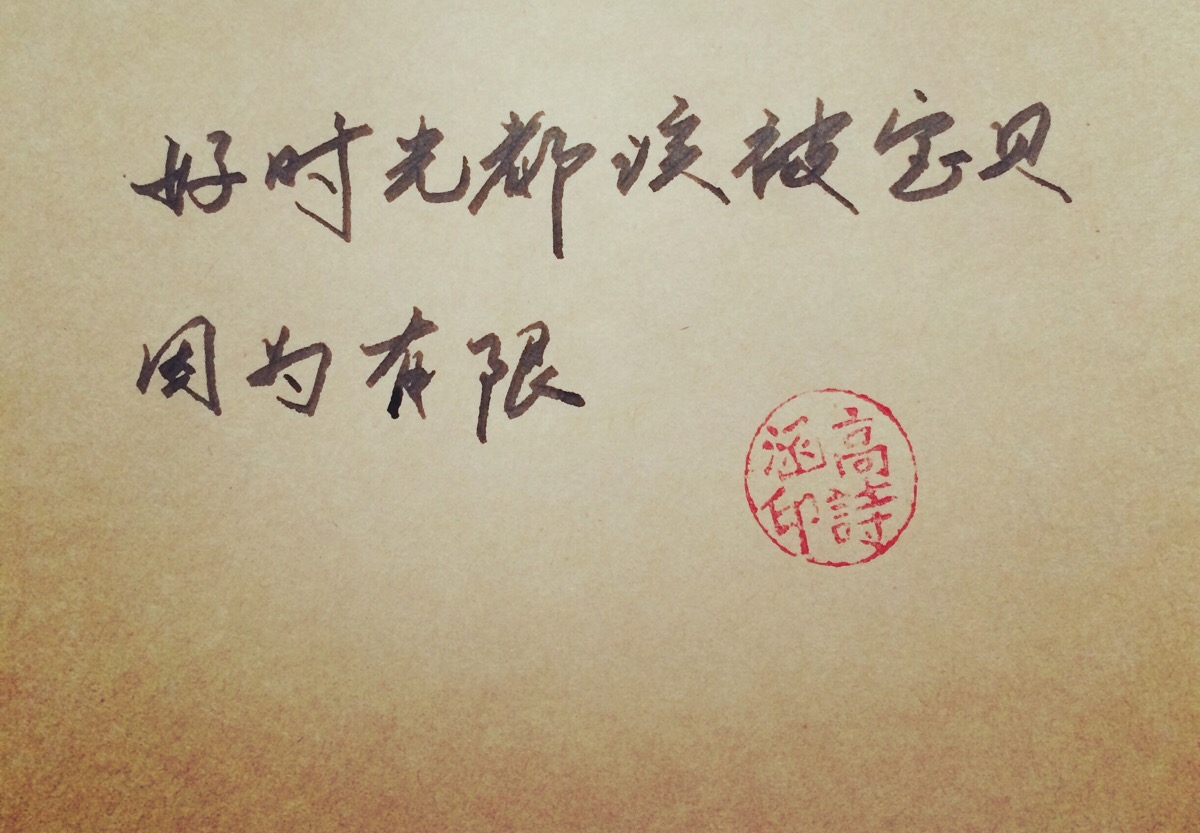 好时光都该被宝贝
因为有限
高詩
涵印